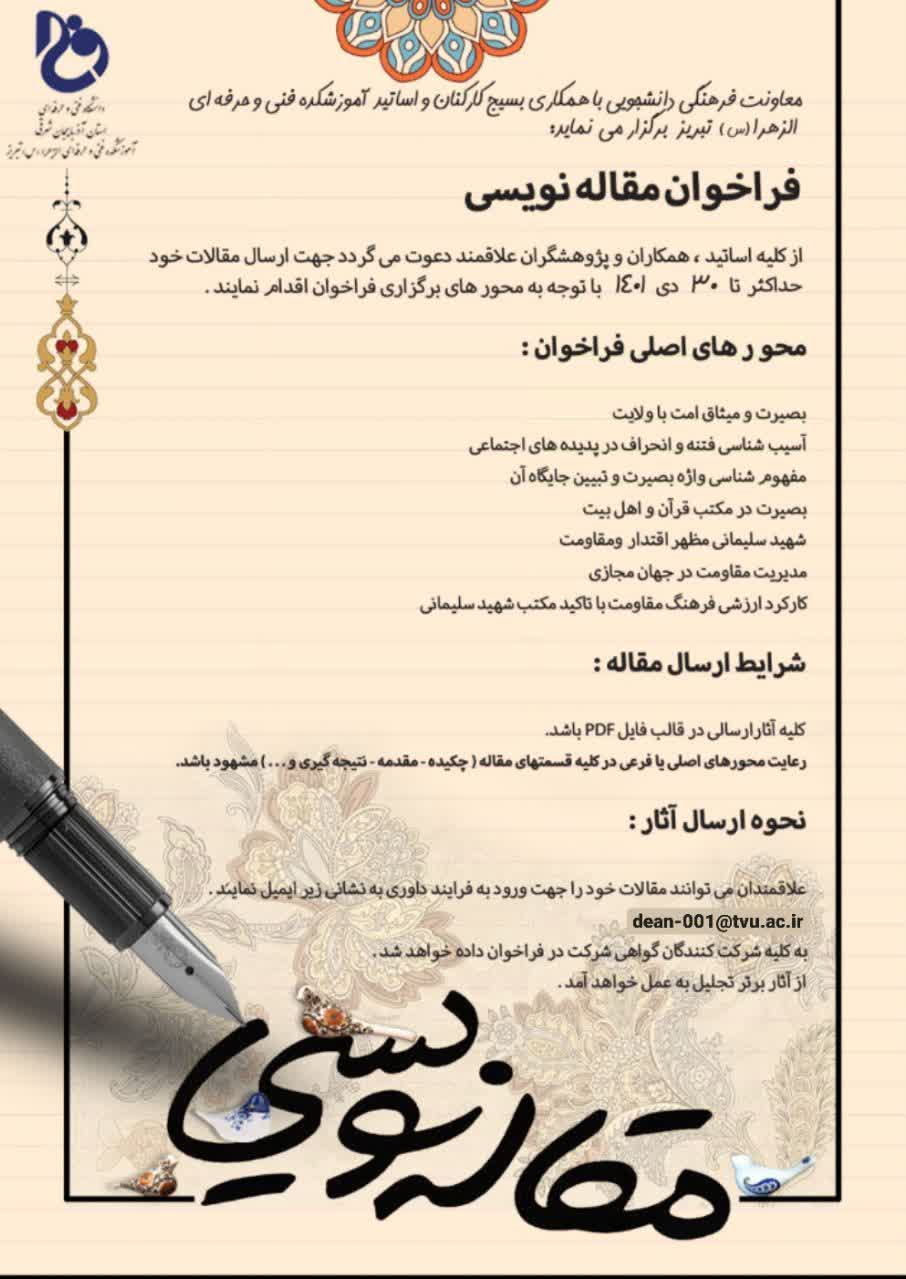 دانشگاه فنی و حرفه‌ای
استان آذربایجان شرقی
آموزشکده فنی و حرفه‌ای الزهرا(س) تبریز
معاونت فرهنگی دانشجویی با همکاری بسیج کارکنان و اساتید آموزشکده فنی و حرفه ای
الزهرا(س) تبریز برگزار می نماید:
فراخوان مقاله نویسی
از کلیه اساتید ، همکاران و پژوهشگران علاقمند دعوت می گردد جهت ارسال مقالات خود
حداکثر تا ۳۰ دی ۱۴۰۱ با توجه به محور های برگزاری فراخوان اقدام نمایند .
محو ر های اصلی فراخوان :
بصیرت و میثاق امت با ولایت
آسیب شناسی فتنه و انحراف در پدیده های اجتماعی
مفهوم شناسی واژه بصیرت و تبیین جایگاه آن
بصیرت در مکتب قرآن و اهل بیت
شهید سلیمانی مظهر اقتدار ومقاومت
مدیریت مقاومت در جهان مجازی
کارکرد ارزشی فرهنگ مقاومت با تاکید مکتب شهید سلیمانی
شرایط ارسال مقاله :
کلیه آثارارسالی در قالب فایل PDF باشد.
رعایت محورهای اصلی یا فرعی در کلیه قسمتهای مقاله ( چکیده - مقدمه - نتیجه گیری و... ) مشهود باشد.
نحوه ارسال آثار :
علاقمندان می توانند مقالات خود را جهت ورود به فرایند داوری به نشانی زیر ایمیل نمایند .
dean-001@tvu.ac.ir
به کلیه شرکت کنندگان گواهی شرکت در فراخوان داده خواهد شد .
از آثار برتر تجلیل به عمل خواهد آمد .
مقاله نویسی